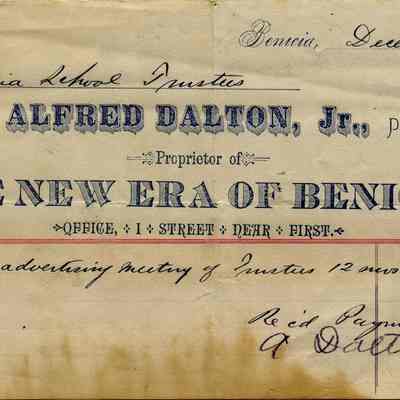 Benicia, Dece
ia School Trustees
ALFRED DALTON, Jr., P
Proprietor of
E NEW ERA OF BENIC
OFFICE, I STREET NEAR FIRST.
advertising meeting of Trustees 12 mos
Rec'd Paym
A Dalt